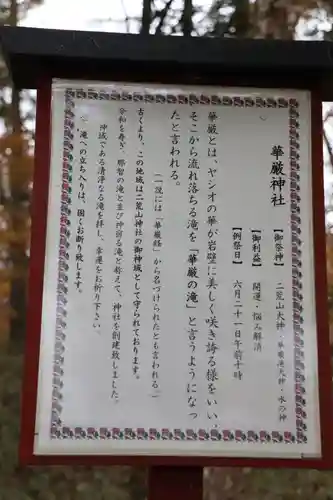 華厳神社
【御祭神】 二荒山大神・華厳滝大神・水の神
【御利益】 開運・悩み解消
【例祭日】 六月二十一日午前十時
華厳とは、ヤシオの華が岩壁に美しく咲き誇る様をいい、
そこから流れ落ちる滝を「華厳の滝」と言うようになっ
たと言われる。
(一説には「華厳経」から名づけられたとも言われる。)
古くより、この地域は二荒山神社の御神域として守られております。
令和を寿ぎ、那智の滝と並び神宿る滝と称えて、神社を創建致しました。
神域である清浄なる滝を拝し、幸運をお祈り下さい。
☆滝への立ち入りは、固くお断り致します。